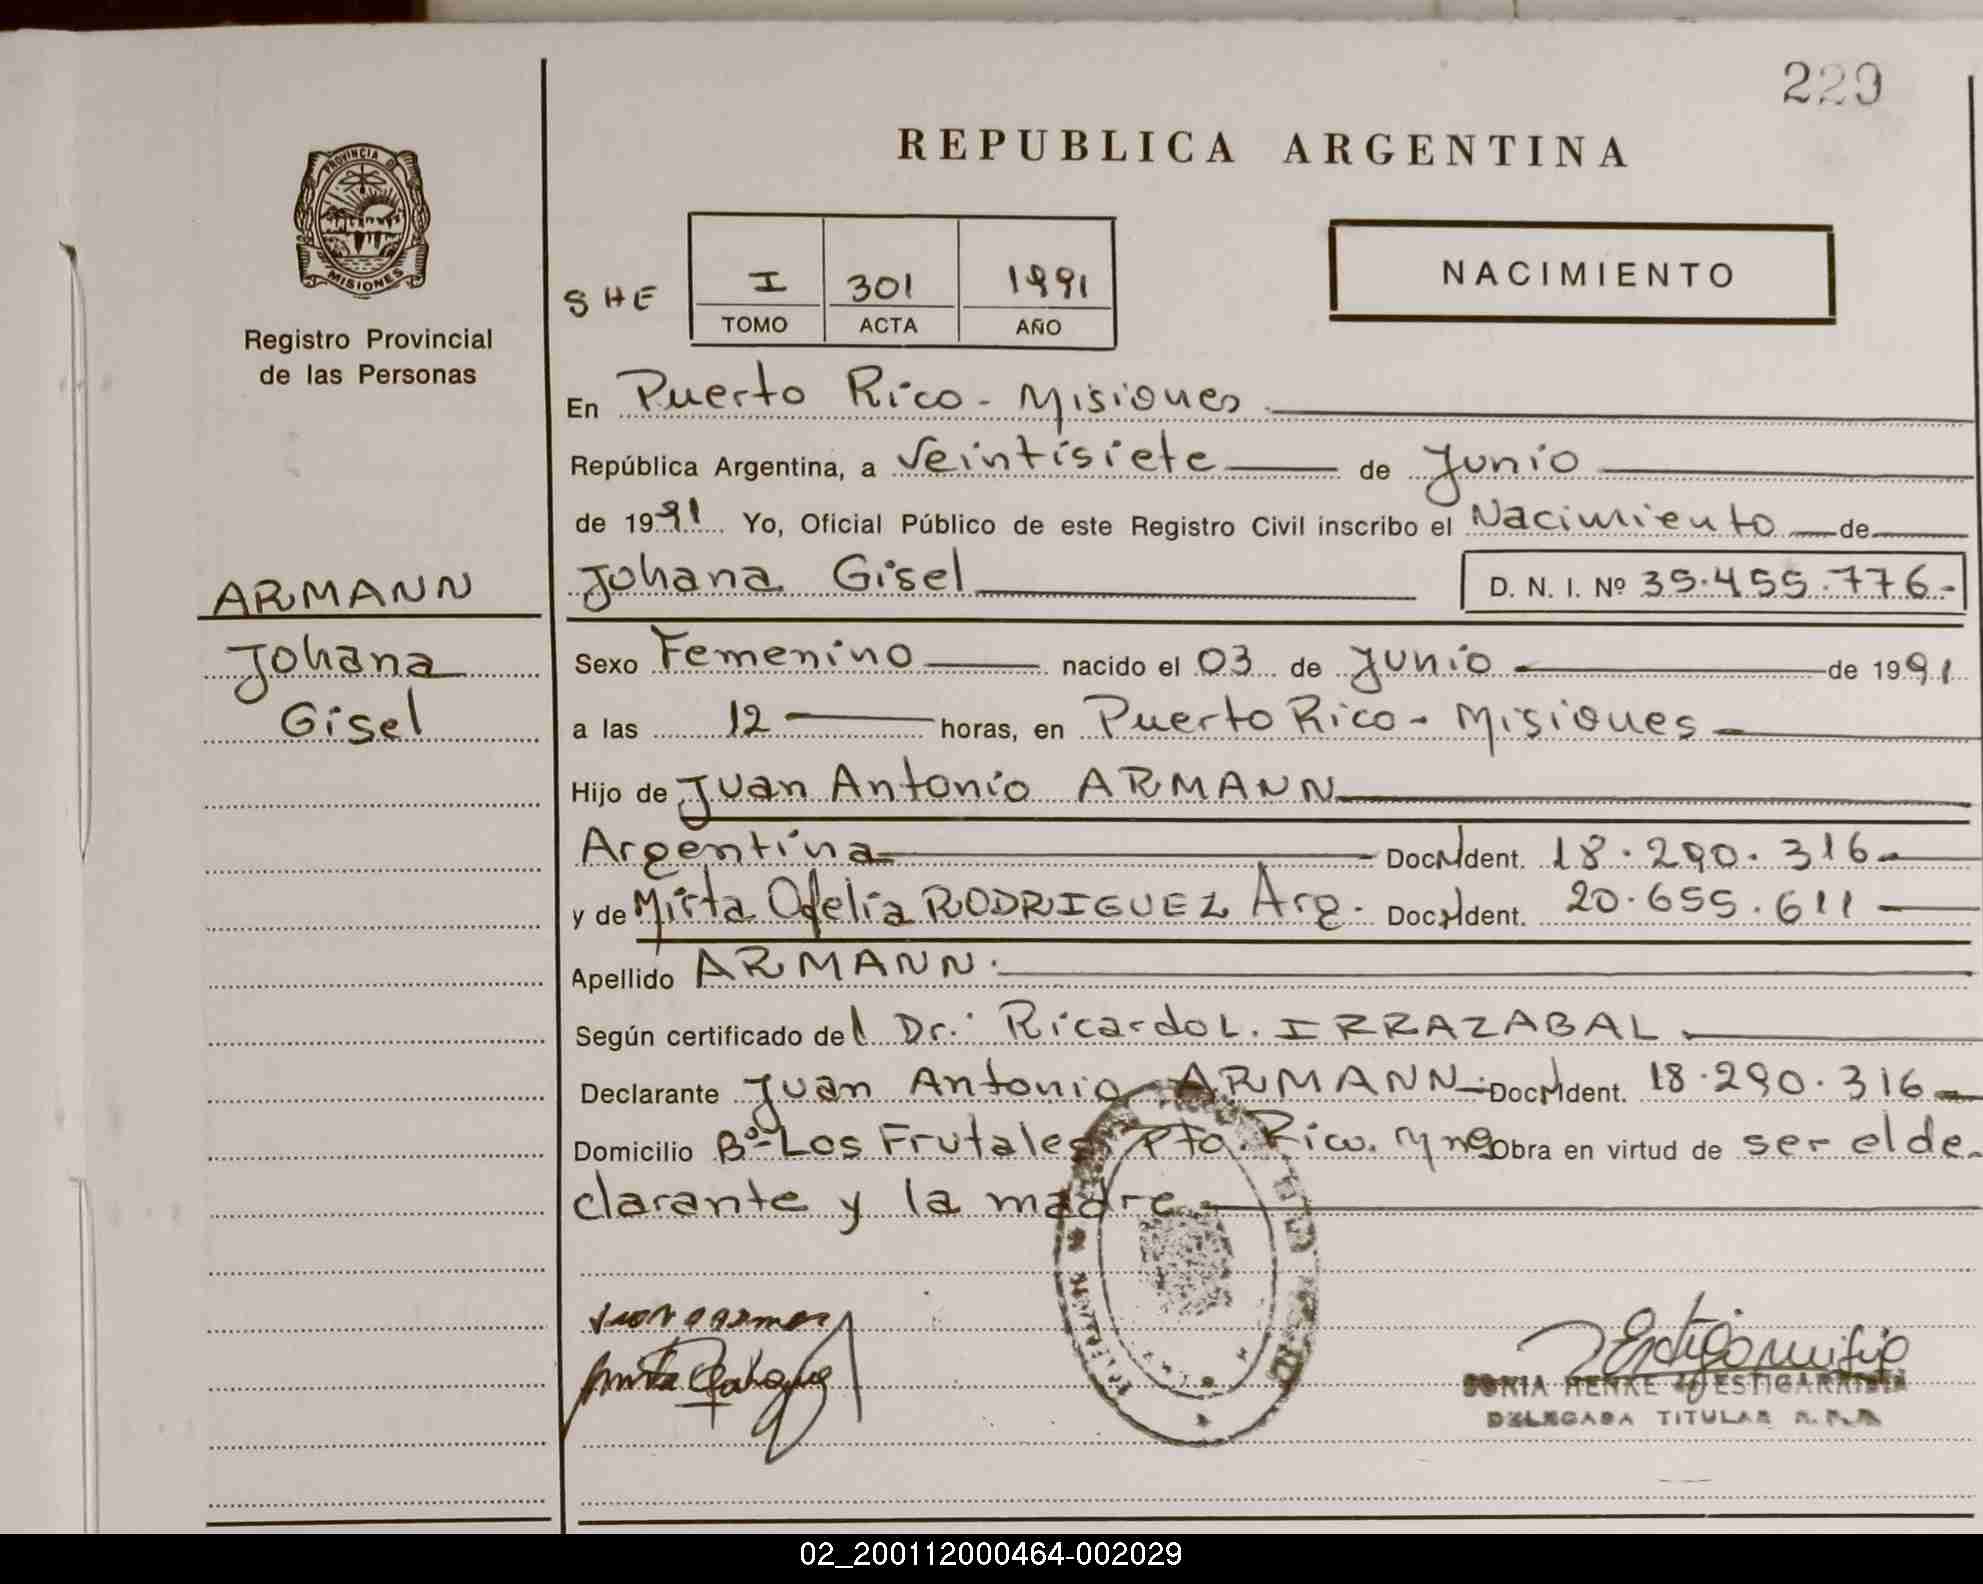 229
REPUBLICA ARGENTINA
PROVINCIA DE
MISIONES
Registro Provincial
de las Personas
SHE
I 301 1991
TOMO ACTA AÑO
NACIMIENTO
En Puerto Rico - Misiones
República Argentina, a veintisiete de Junio
de 1991 Yo, Oficial Público de este Registro Civil inscribo el Nacimiento de
Johana Gisel D. N. I. Nº 35.455.776.-
ARMANN
Johana
Gisel
Sexo Femenino nacido el 03 de Junio de 1991
a las 12 horas, en Puerto Rico - Misiones
Hijo de Juan Antonio ARMANN
Argentina Doc. N Ident. 18.290.316
y de Mirta Ofelia RODRIGUEZ Arg. Doc. N Ident. 20.655.611
Apellido ARMANN.
Según certificado del Dr.: Ricardo L. IRRAZABAL
Declarante Juan Antonio ARMANN Doc. N Ident. 18.290.316
Domicilio Bº- Los Frutales Pto. Rico. Mnes Obra en virtud de ser el de-
clarante y la madre
SONIA HENKE de ESTIGARRIBIA
DELEGADA TITULAR R.P.P.
02_200112000464-002029